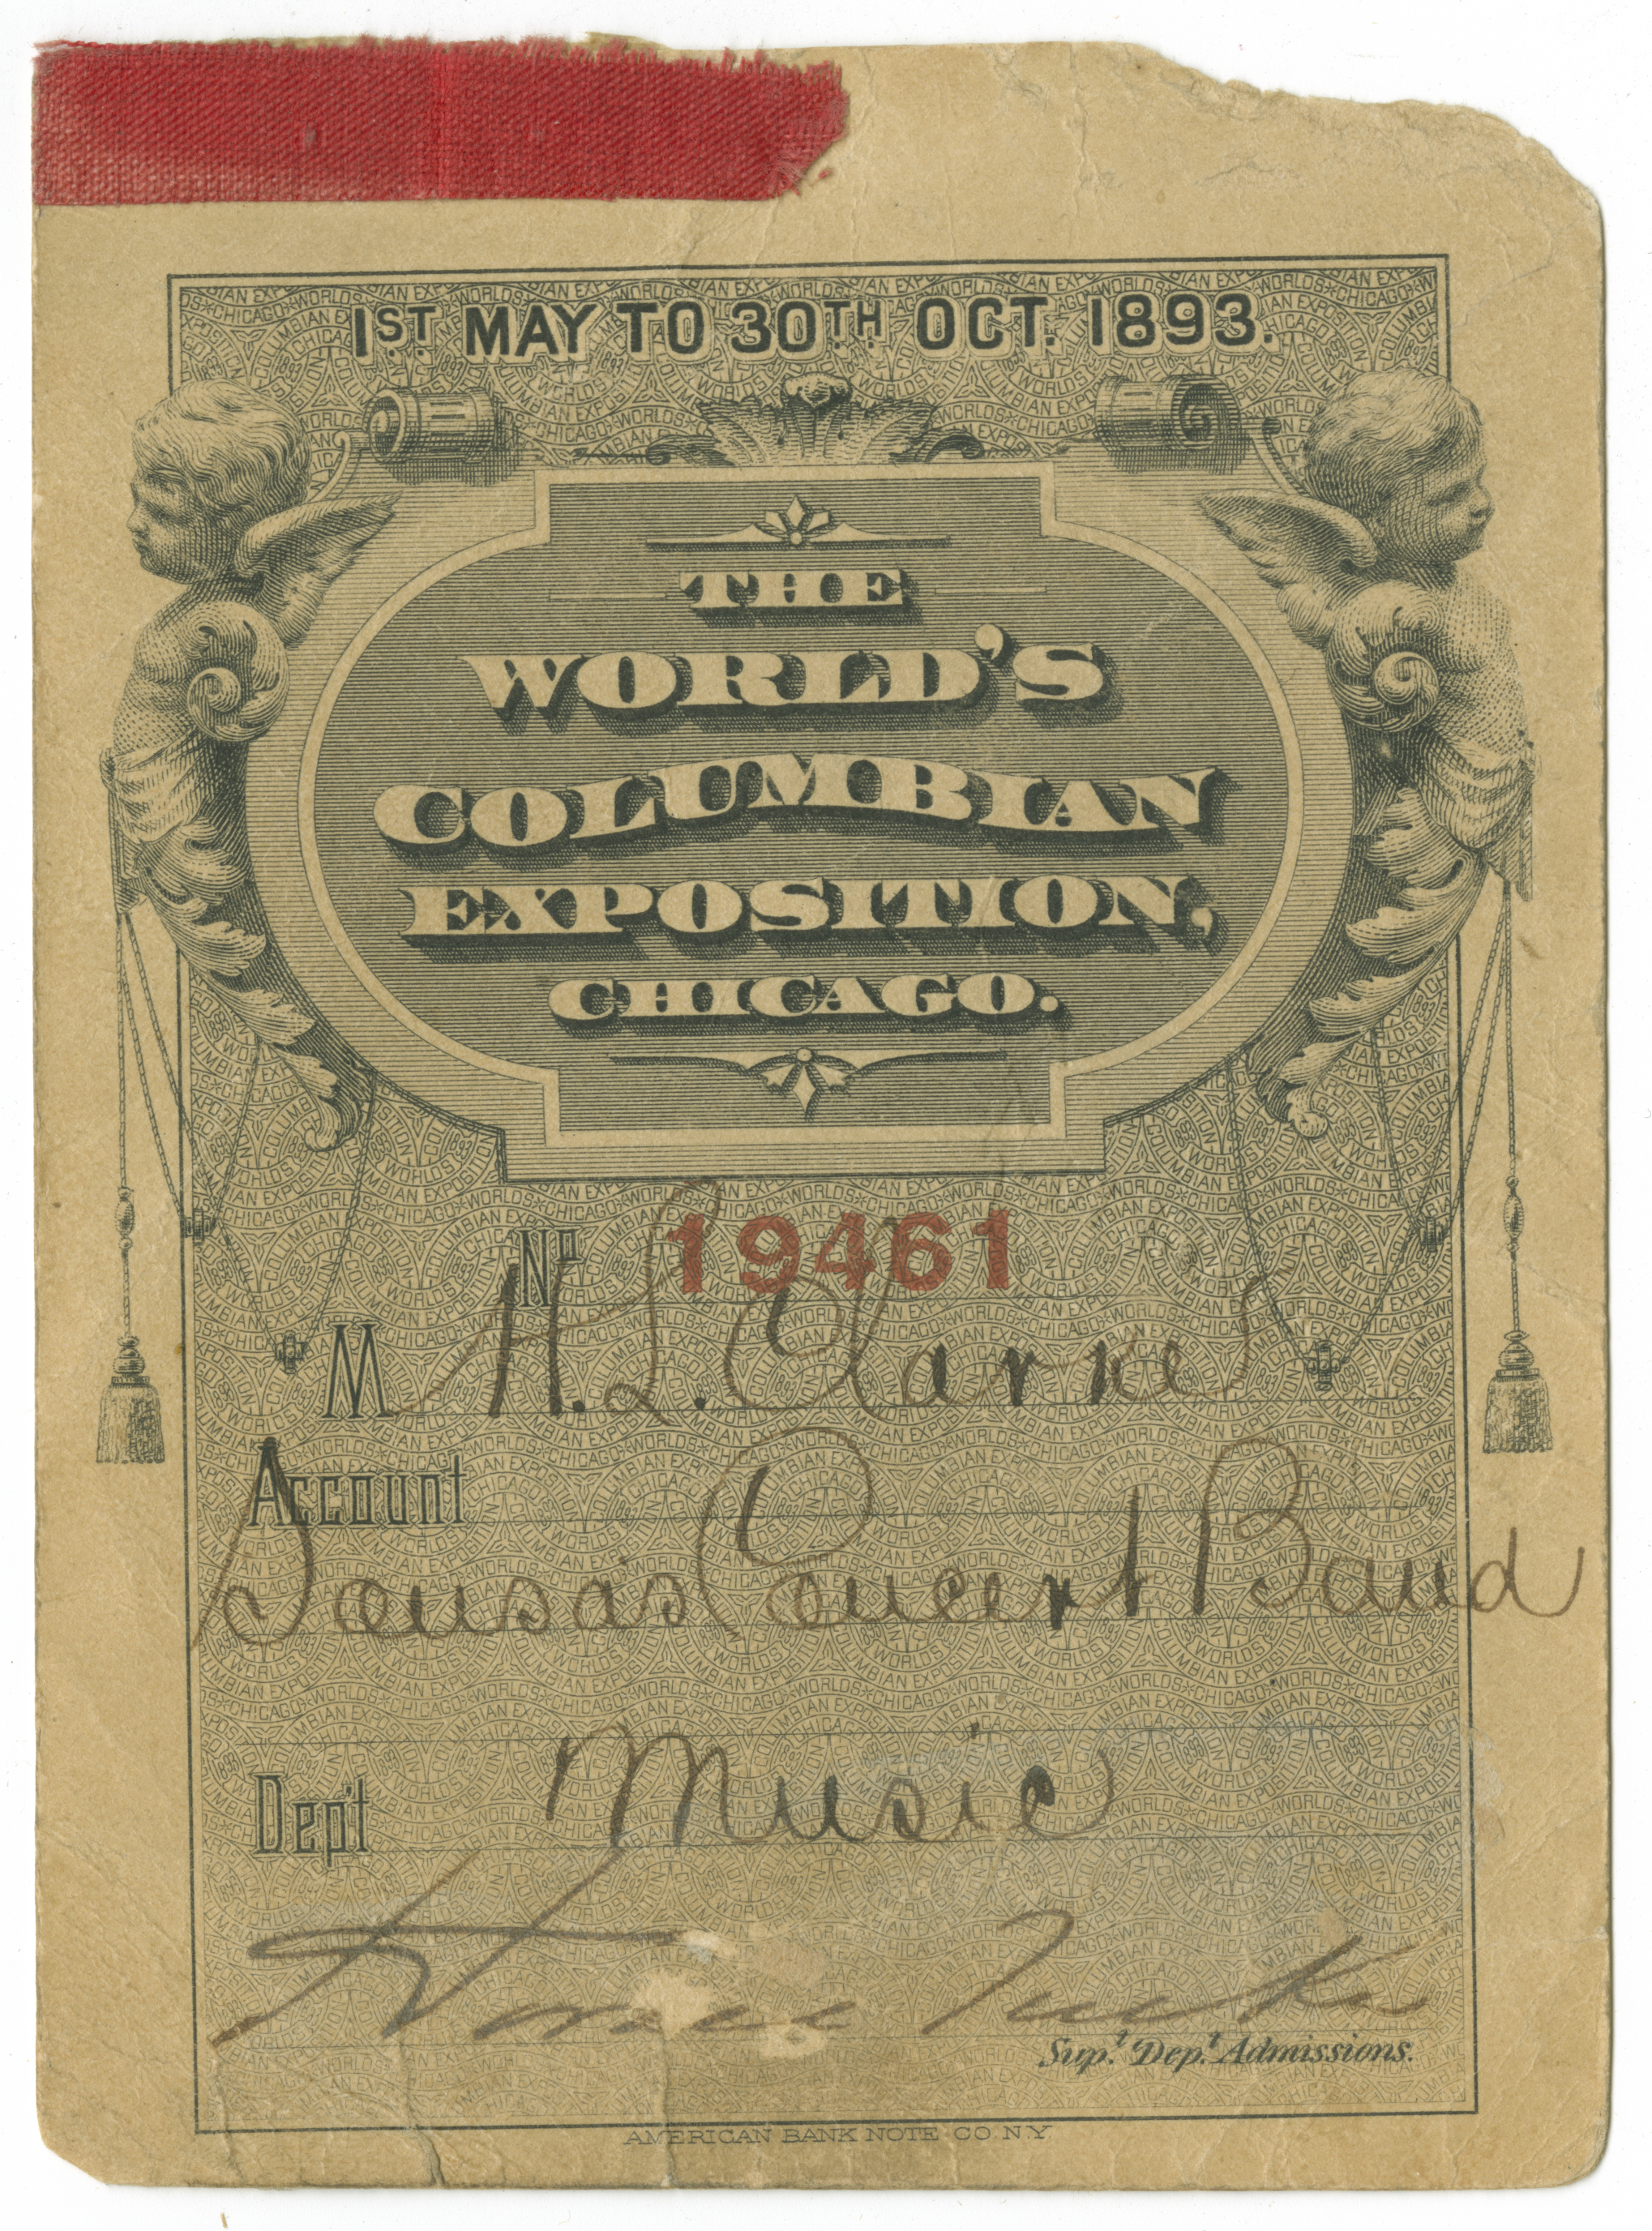 1ST MAY TO 30TH OCT. 1893.
THE
WORLD'S
COLUMBIAN
EXPOSITION,
CHICAGO.
No 19461
M H. L. Clarke
Account
Sousas Concert Band
Dep't Music
Horace Tucker
Sup.t Dep.t Admissions.
AMERICAN BANK NOTE CO. N.Y.